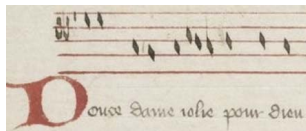 Douce dame iolie pour dieu